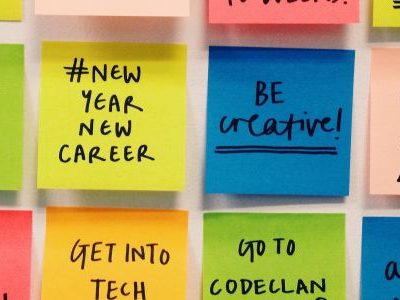 WEEKS!
#NEW
YEAR
NEW
CAREER
BE
creative!
GET INTO
TECH
GO TO
CODECLAN